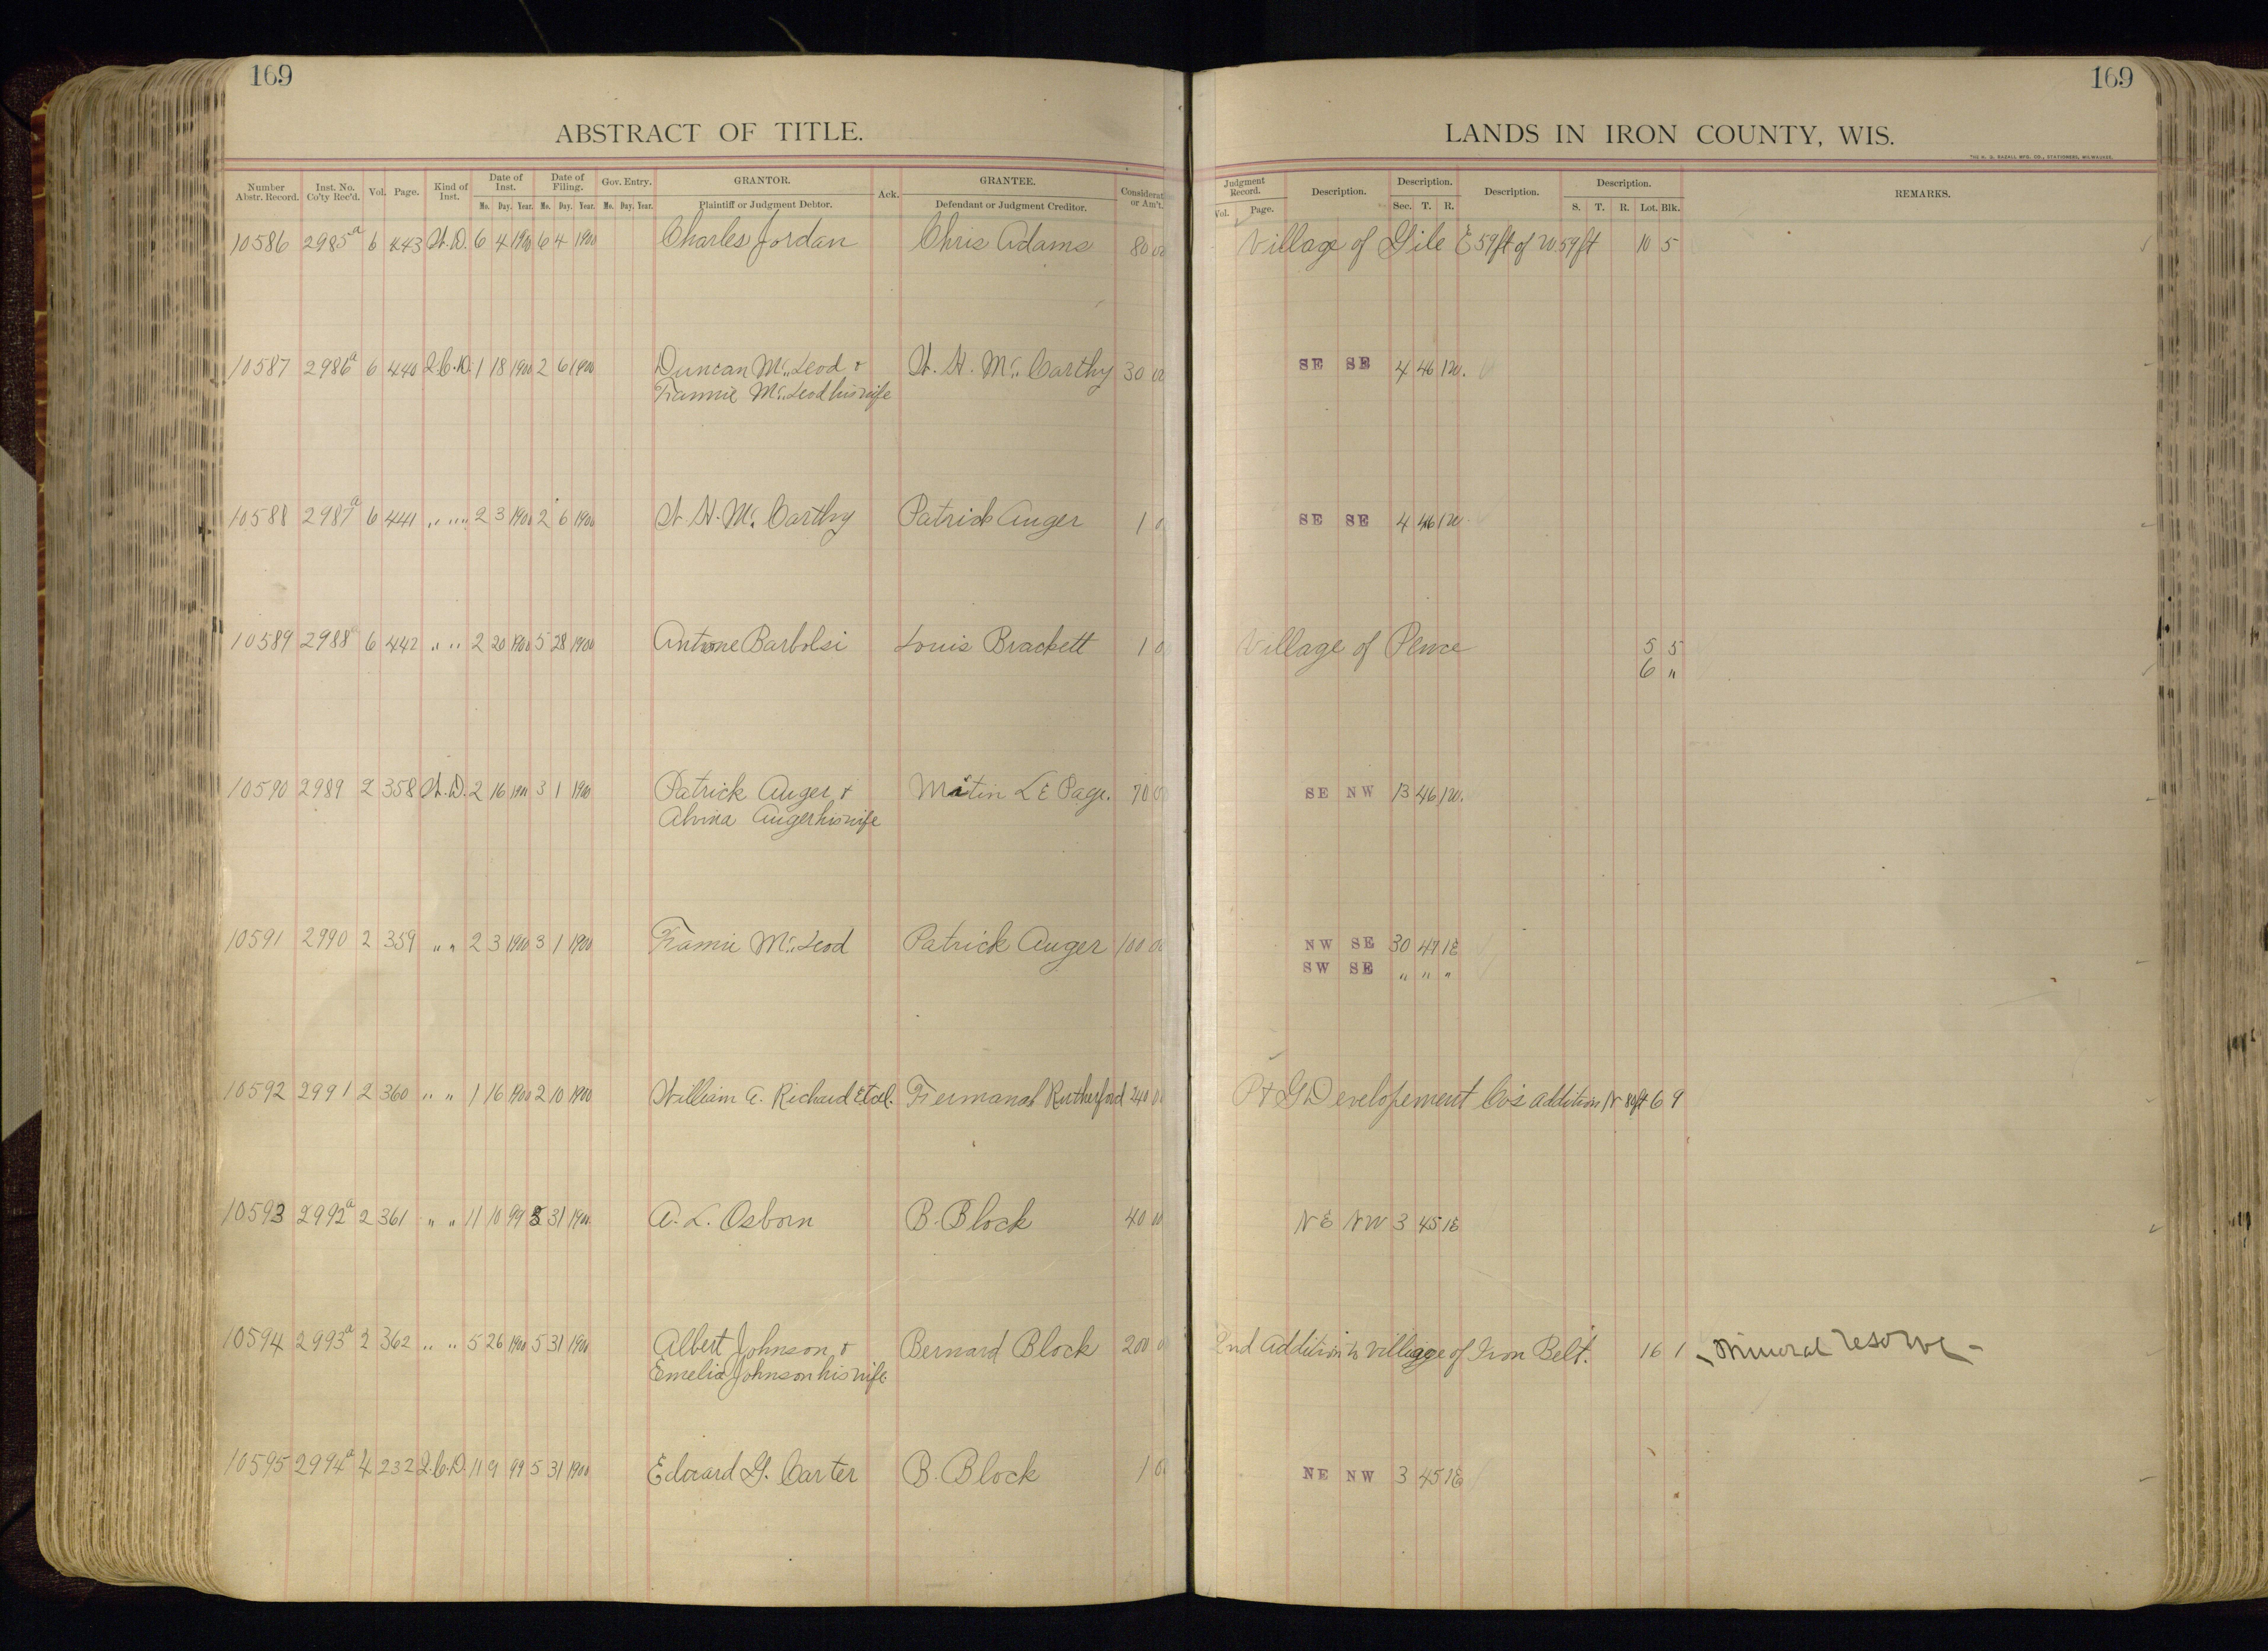 169
169
ABSTRACT OF TITLE.
LANDS IN IRON COUNTY, WIS.
THE H. G. RAZALL MFG. CO., STATIONERS, MILWAUKEE.
Number Abstr. Record. Inst. No. Co'ty Rec'd. Vol. Page. Kind of Inst. Date of Inst. Mo. Day. Year. Date of Filing. Mo. Day. Year. Gov. Entry. Mo. Day. Year. GRANTOR. Plaintiff or Judgment Debtor. Ack. GRANTEE. Defendant or Judgment Creditor. Considerat. or Am't. Judgment Record. Vol. Page. Description. Description. Sec. T. R. Description. Description. S. T. R. Lot. Blk. REMARKS.
10586 2985a 6 443 W.D. 6 4 1900 6 4 1900 Charles Jordan Chris Adams 80 00 Village of Gile E 59 ft of W. 59 ft 10 5
10587 2986a 6 440 Q.C.D. 1 18 1900 2 6 1900 Duncan Mc Leod & W. H. Mc Carthy 30 00 SE SE 4 46 1W.
Fannie Mc Leod his wife
10588 2987a 6 441 " " " 2 3 1900 2 6 1900 W. H. Mc Carthy Patrick Auger 1 0 SE SE 4 46 1W.
10589 2988a 6 442 " " 2 20 1900 5 28 1900 Antone Barbolsi Louis Brackett 1 0 Village of Pence 5 5
6 "
10590 2989 2 358 W.D. 2 16 1900 3 1 1900 Patrick Auger & Le Page. 70 00 SE NW 13 46 1W.
Alvina Auger his wife
10591 2990 2 359 " " 2 3 1900 3 1 1900 Fannie Mc Leod Patrick Auger 100 00 NW SE 30 47 1E
SW SE " " "
10592 2991 2 360 " " 1 16 1900 2 10 1900 William A. Richard Et al. Rutherford 240 00 P & G Developement Co's addition N 80ft 6 9
10593 2992a 2 361 " " 11 10 99 5 31 1900 A. L. Osborn B. Block 40 00 NE NW 3 45 1E
10594 2993a 2 362 " " 5 26 1900 5 31 1900 Albert Johnson & Bernard Block 200 0 2nd Addition to Villiage of Iron Belt. 16 1 - Mineral reserve -
Emelia Johnson his wife
10595 2994a 4 232 Q.C.D. 11 9 99 5 31 1900 Edward G. Carter B. Block 1 00 NE NW 3 45 1E